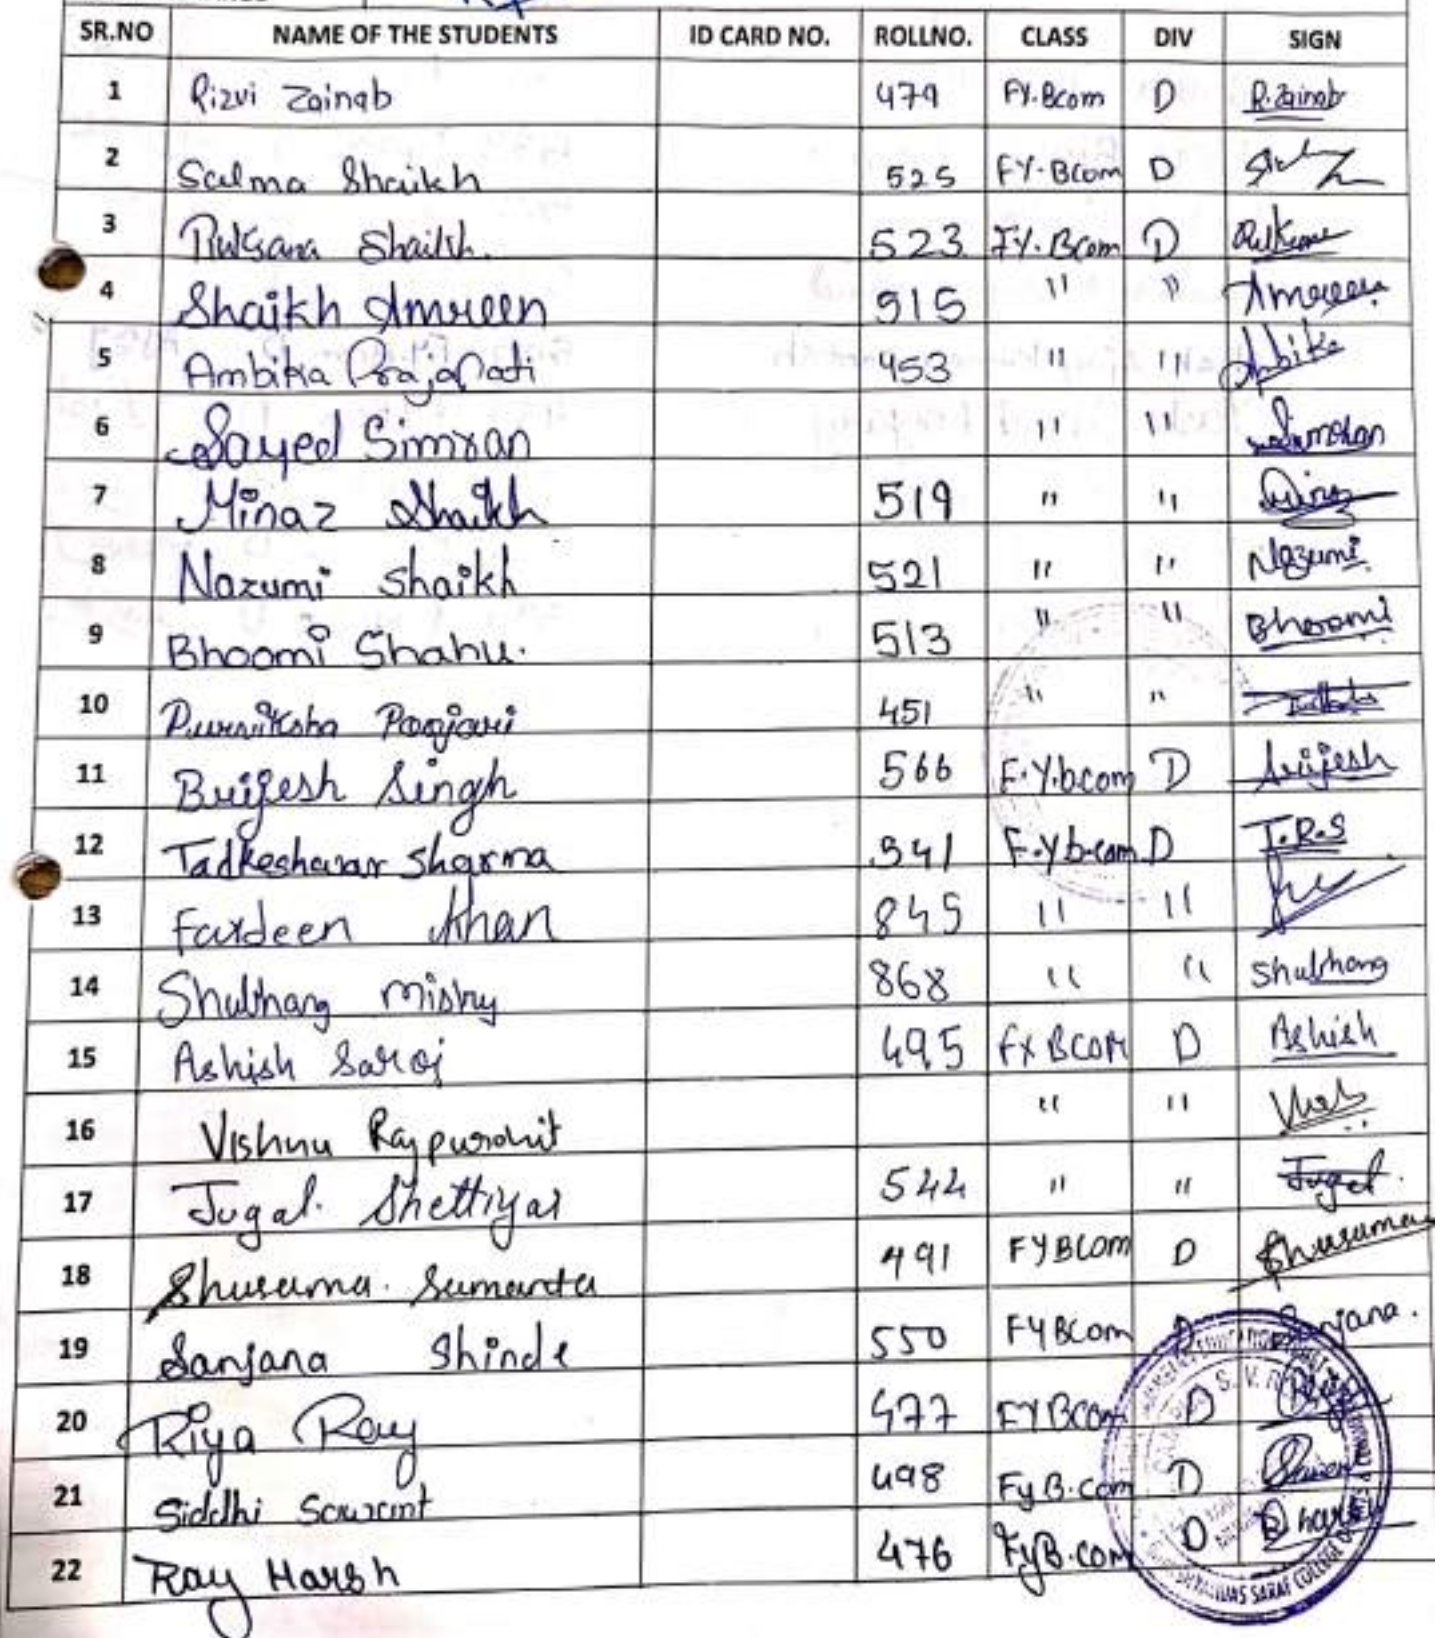 SR.NO NAME OF THE STUDENTS ID CARD NO. ROLLNO. CLASS DIV SIGN
1 Rizvi Zainab 479 FY.Bcom D R.Zainab
2 Salma Shaikh 525 FY.Bcom D
3 Ruksana Shaikh. 523 FY.Bcom D
4 Shaikh Amreen 515 " " Amreen
5 Ambika Prajapati 453 " " Ambika
6 Sayed Simran " " Simran
7 Minaz Shaikh 519 " "
8 Nazumi Shaikh 521 " " Nazumi
9 Bhoomi Shahu. 513 " " Bhoomi
10 451 " "
11 Brijesh Singh 566 F.Y.bcom D Brijesh
12 Tadkeshavar Sharma 541 F.Y b.com D T.R.S
13 Fardeen Khan 845 " "
14 Shubhang mistry 868 " " Shubhang
15 Ashish Saroj 495 FY BCOM D Ashish
16 Vishnu Rajpurohit " "
17 Jugal. Shettiyar 544 " " Jugal.
18 491 FYBCOM D
19 Sanjana Shinde 550 FYBCom D Sanjana.
20 Riya Ray 477 FYBCom D
21 Siddhi Sawant 498 FyB.com D
22 Ray Harsh 476 FyB.com D Harsh
S.V.
SARAF COLLEGE OF